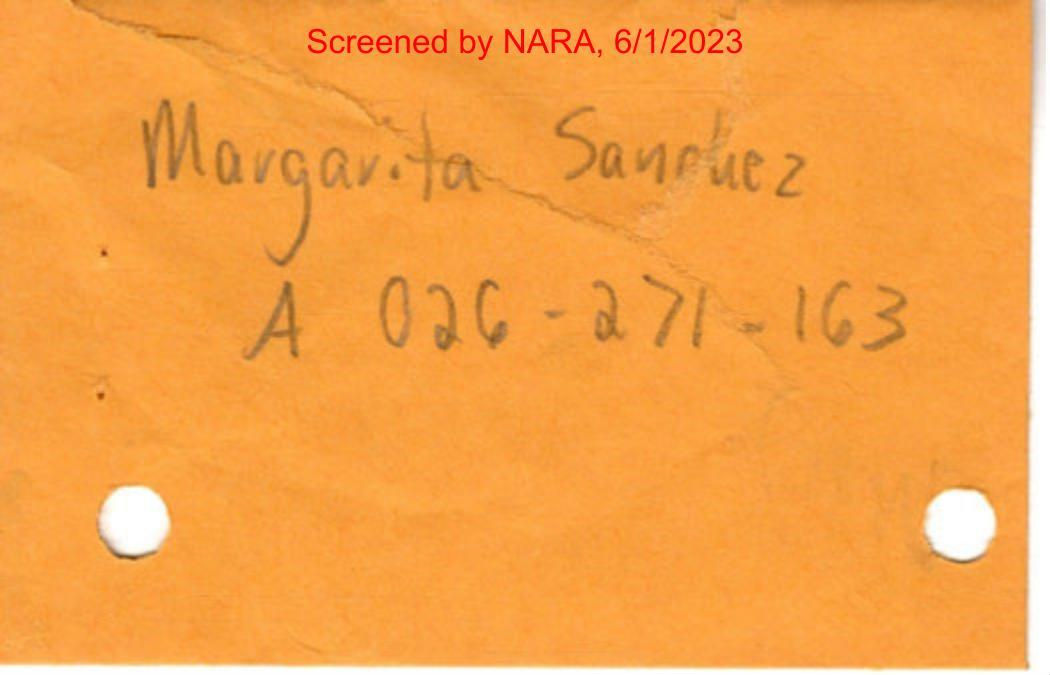 Screened by NARA, 6/1/2023
Margarita Sanchez
A 026-271-163